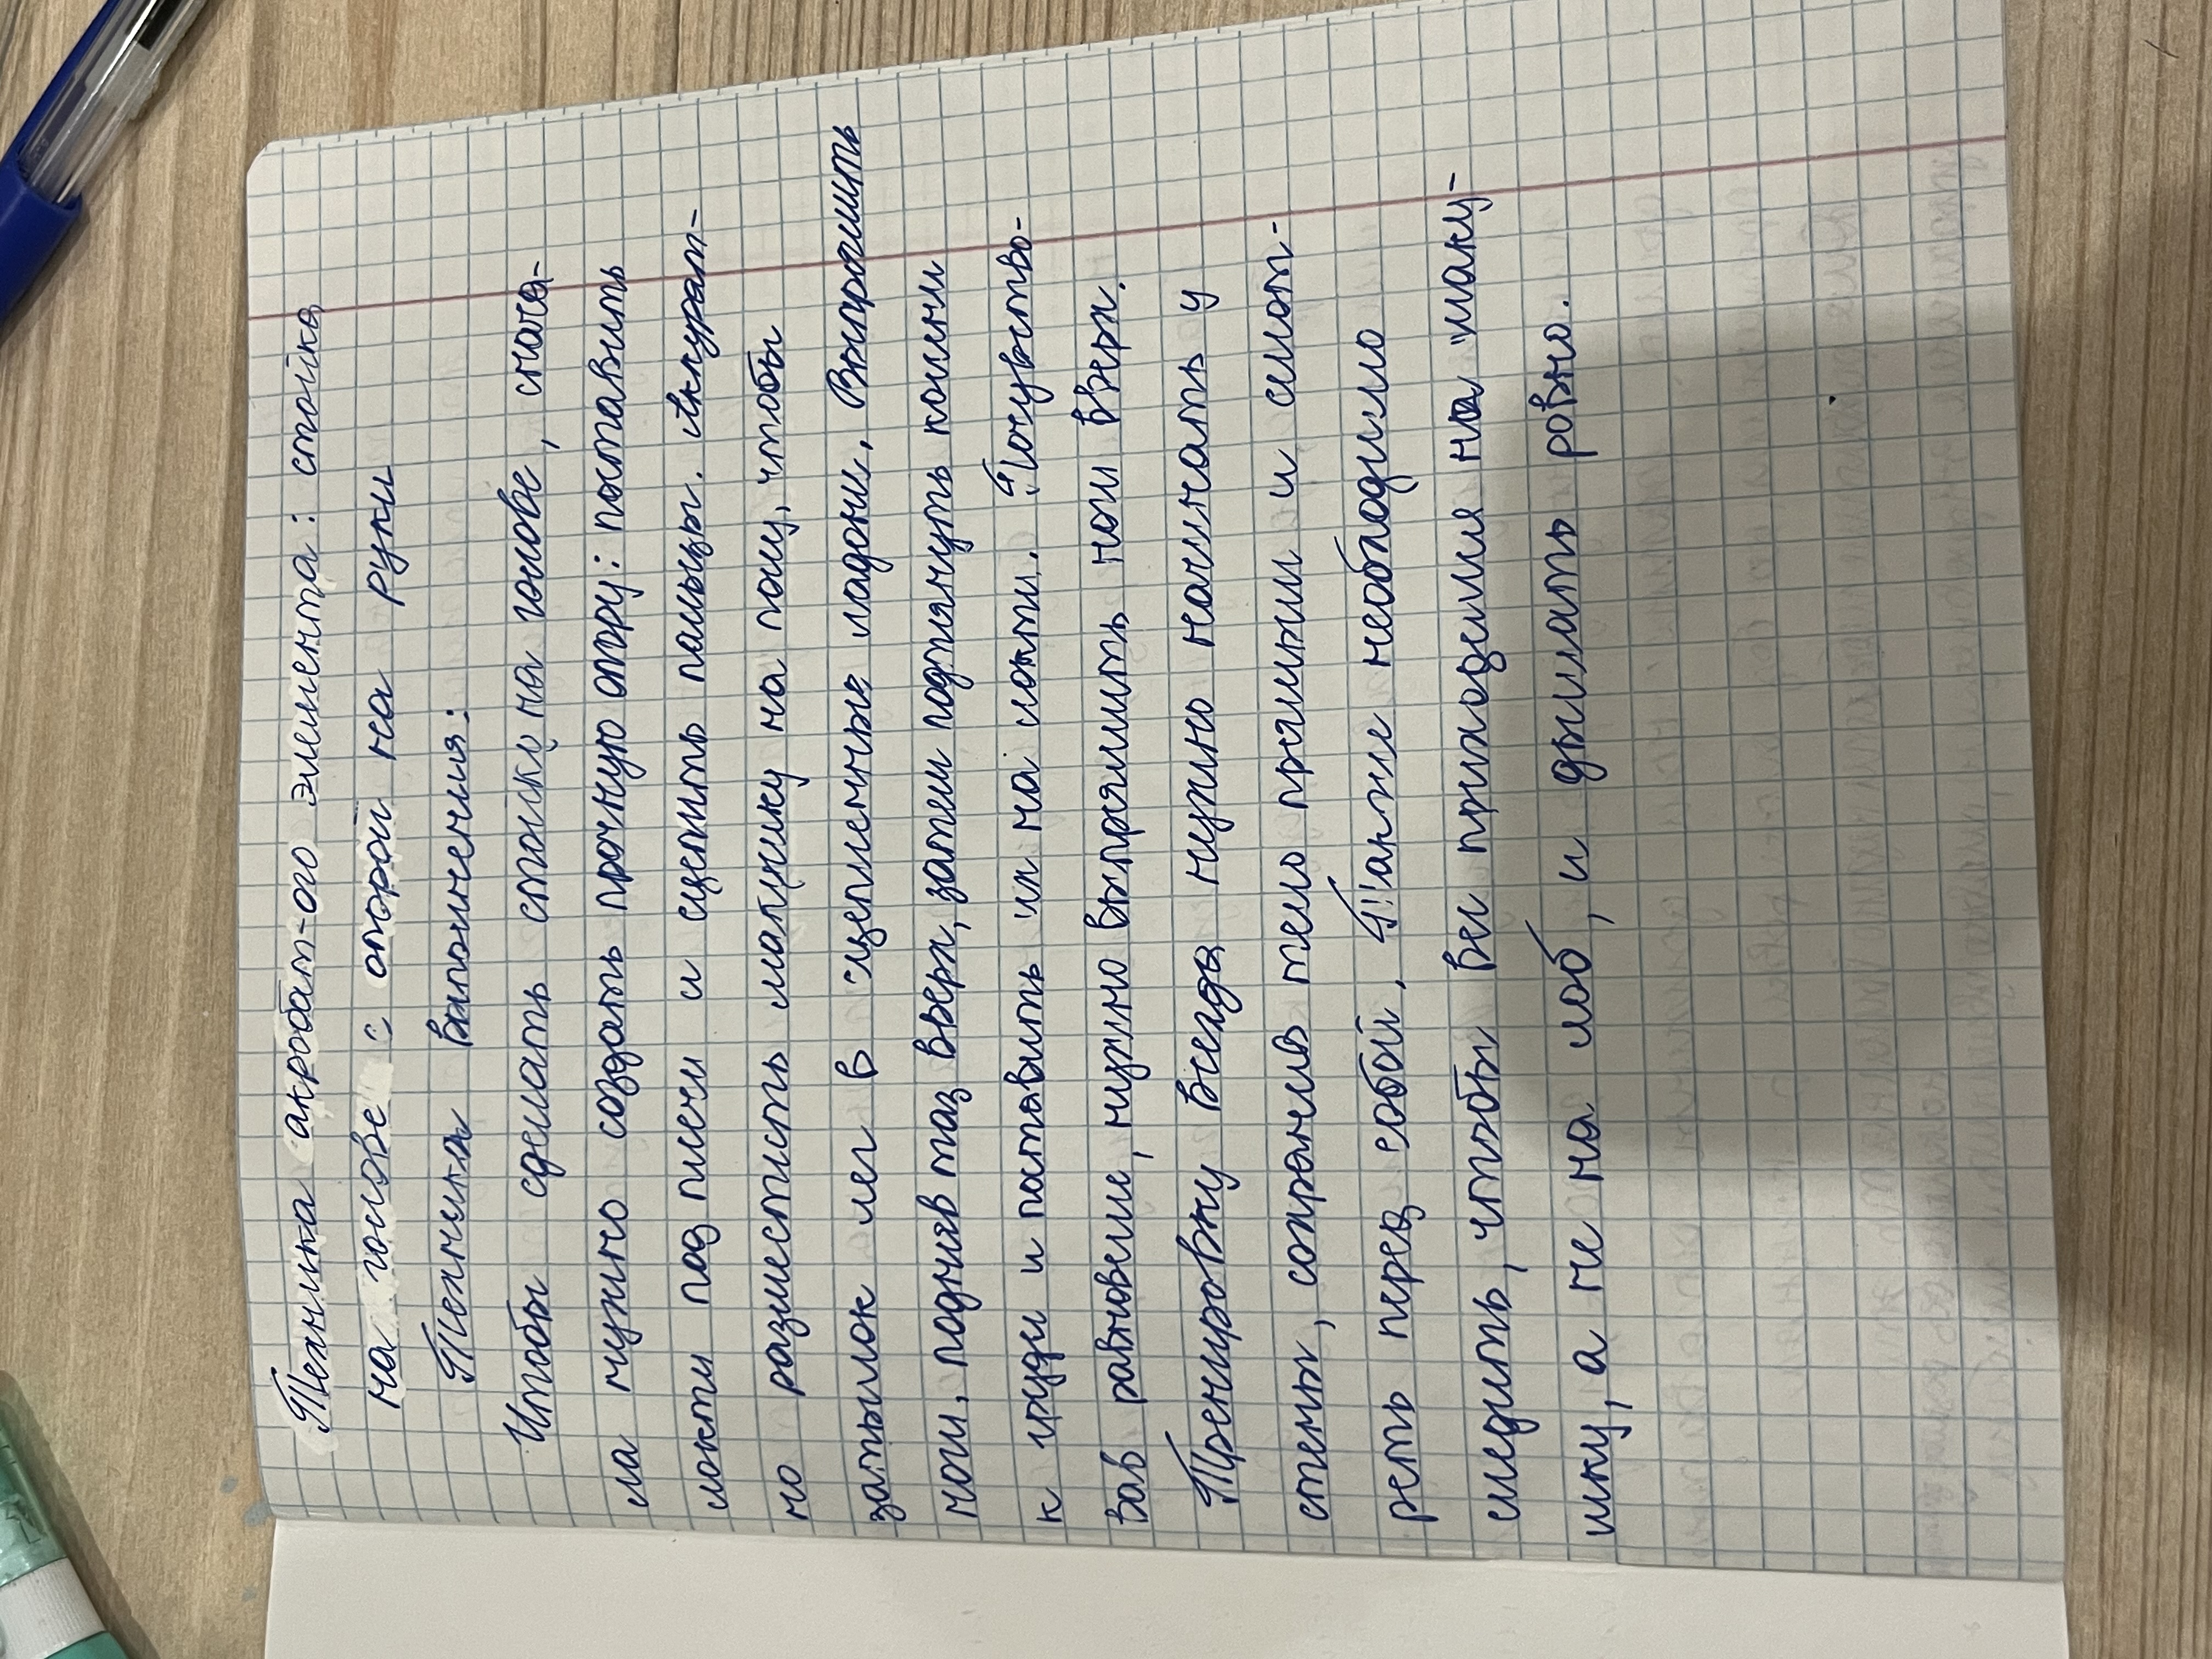 Техника акробат-ого элемента: стойка
на голове с опорой на руки
Техника выполнения:
Чтобы сделать стойку на голове, снача-
ла нужно создать прочную опору: поставить
локти под плечи и сцепить пальцы. Аккурат-
но разместить макушку на полу, чтобы
затылок лег в сцепленные ладони. Выпрямить
ноги, подняв таз вверх, затем подтянуть колени
к груди и поставить их на локти. Почувство-
вав равновесие, нужно выпрямить ноги вверх.
Тренировку всегда нужно начинать у
стены, сохранив тело прямым и смот-
реть перед собой. Также необходимо
следить, чтобы вес приходился на маку-
шку, а не на лоб, и дышать ровно.